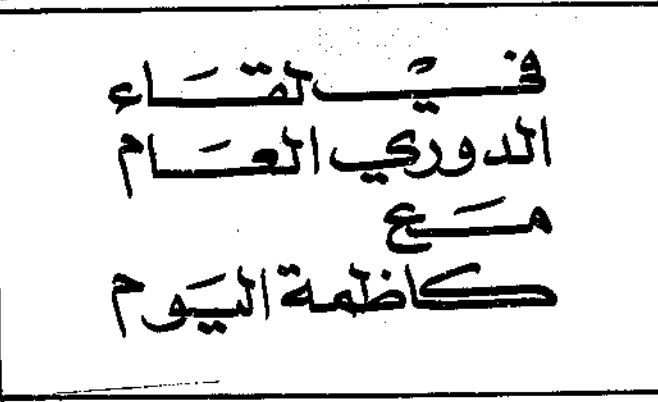 في لقاء
الدوري العام
مع
كاظمة اليوم